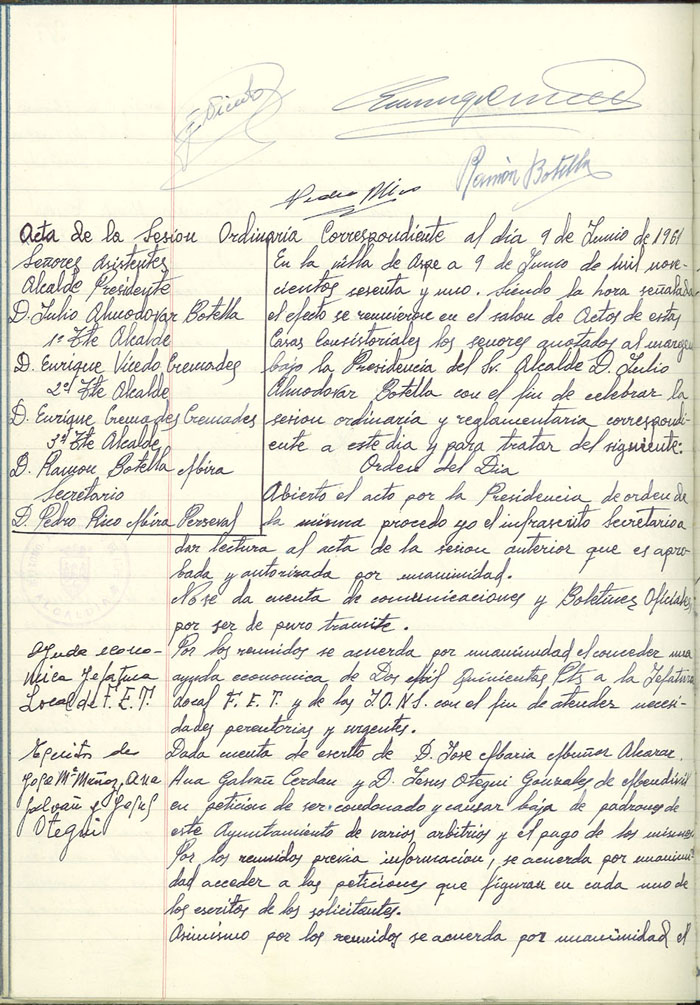 E. Vicedo
Ramón Botella
Pedro Rico
Acta de la Sesion Ordinaria Correspondiente al dia 9 de Junio de 1961
Señores Asistentes
Alcalde Presidente
D. Julio Almodovar Botella
1º Tte Alcalde
D. Enrique Vicedo Cremades
2º Tte Alcalde
D. Enrique Cremades Cremades
3º Tte Alcalde
D. Ramon Botella Mira
Secretario
D. Pedro Rico Mira Perseval
En la villa de Aspe a 9 de Junio de mil nove-
cientos sesenta y uno. Siendo la hora señalada
al efecto se reunieron en el salon de Actos de estas
Casas Consistoriales los señores anotados al margen
bajo la Presidencia del Sr. Alcalde D. Julio
Almodovar Botella con el fin de celebrar la
sesion ordinaria y reglamentaria correspondi-
ente a este dia y para tratar del siguiente:
Orden del Dia
Abierto el acto por la Presidencia de orden de
la misma procedo yo el infrascrito Secretario a
dar lectura al acta de la sesion anterior que es apro-
bada y autorizada por unanimidad.
No se da cuenta de comunicaciones y Boletines Oficiales,
por ser de puro tramite.
Ayuda econo-
mica Jefatura
Local de F.E.T.
Por los reunidos se acuerda por unanimidad el conceder una
ayuda economica de Dos Mil Quinientas Pts a la Jefatura
Local F.E.T. y de las J.O.N.S. con el fin de atender necesi-
dades perentorias y urgentes.
Escrito de
Jose Mª Muñoz, Ana
Galvañ y Jesus
Otegui
Dada cuenta de escrito de D. Jose Maria Muñoz Alcaraz.
Ana Galvañ Cerdan y D. Jesus Otegui Gonzales de Mendivil
en peticion de ser condonado y causar baja de padrones de
este Ayuntamiento de varios arbitrios y el pago de los mismos
Por los reunidos previa informacion, se acuerda por unanimi-
dad acceder a las peticiones que figuran en cada uno de
los escritos de los solicitantes.
Asimismo por los reunidos se acuerda por unanimidad el
ALCALDIA